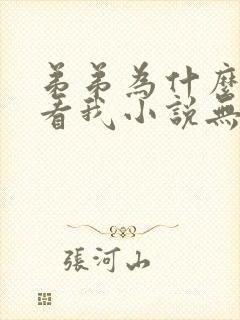 弟弟為什麼
看我小說無
張河山